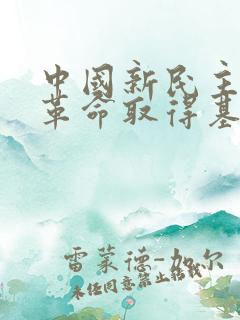 中國新民主
革命取得基
雷蒙德-加尔
未经同意禁止转载